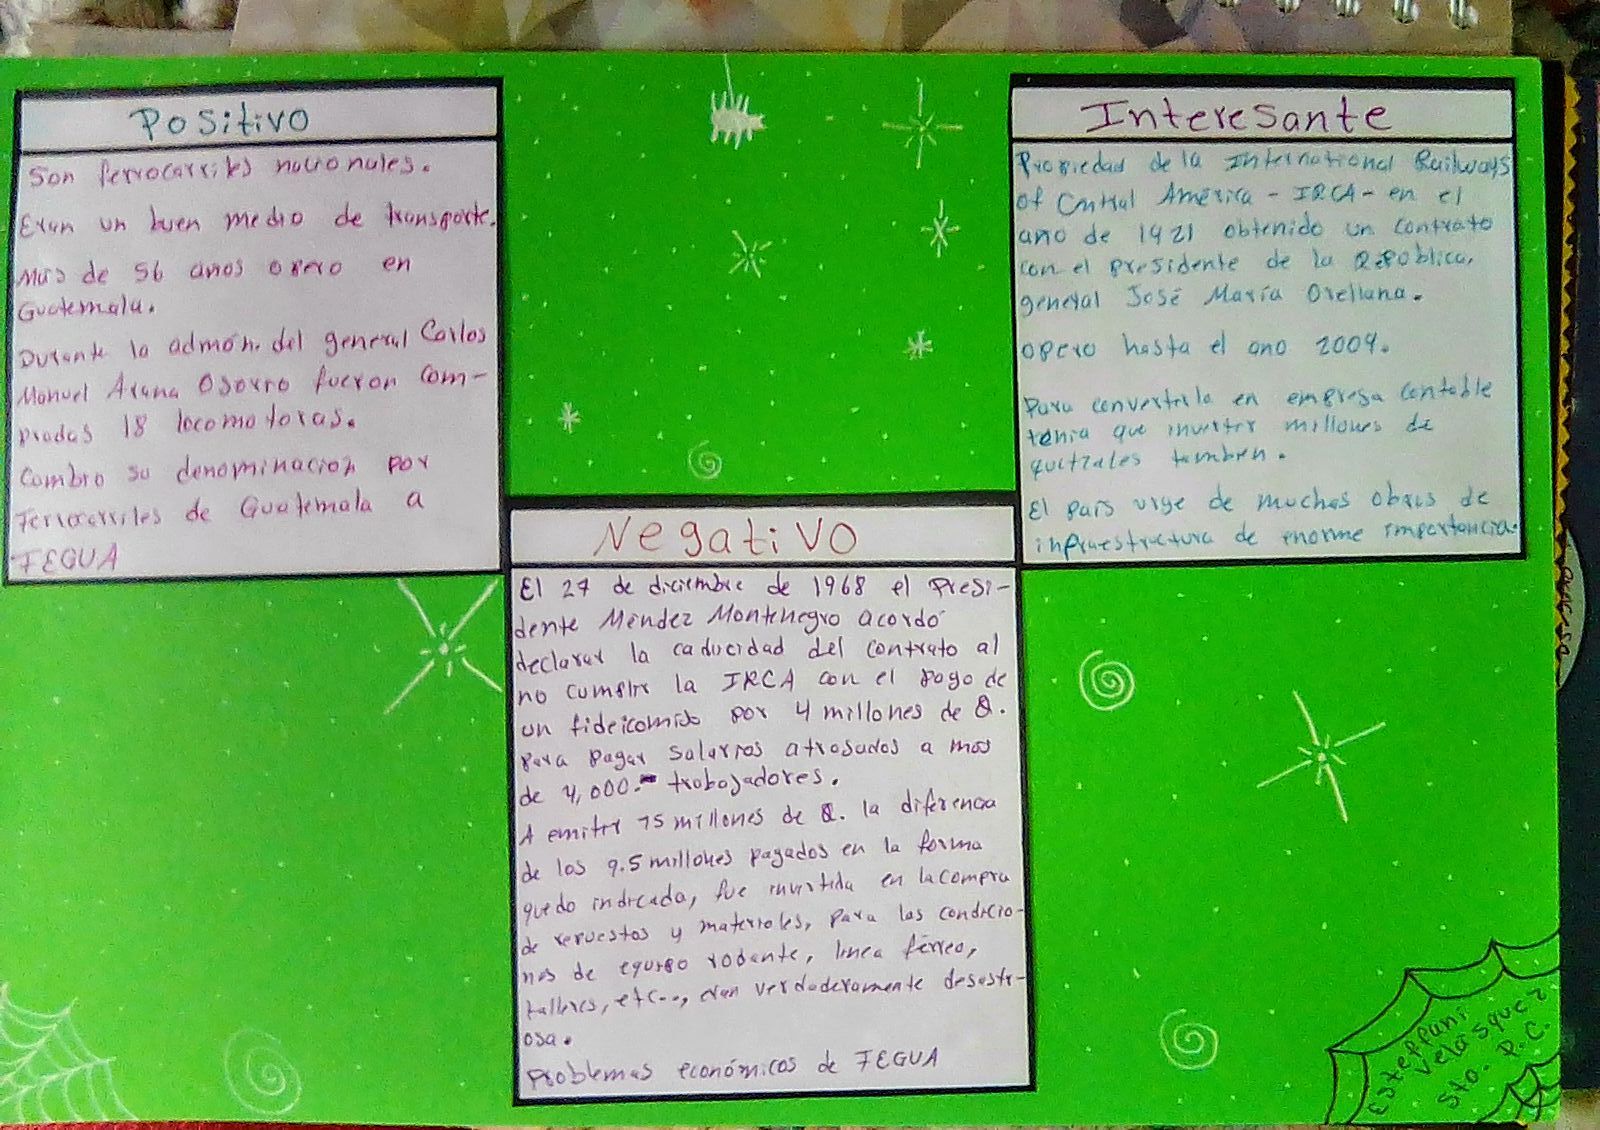 Positivo
Son ferrocarriles nacionales.
Eran un buen medio de transporte.
Más de 56 anos opero en
Guatemala.
Durante la admón. del general Carlos
Manuel Arana Osorio fueron com-
pradas 18 locomotoras.
Cambio su denominacion por
Ferrocarriles de Guatemala a
FEGUA
Negativo
El 27 de diciembre de 1968 el Presi-
dente Méndez Montenegro acordó
declarar la caducidad del contrato al
no cumplir la IRCA con el pago de
un fideicomiso por 4 millones de Q.
para pagar salarios atrasados a mas
de 4,000.- trabajadores.
A emitir 75 millones de Q. la diferencia
de los 9.5 millones pagados en la forma
quedo indicada, fue invertida en la compra
de repuestos y materiales, para las condicio-
nes de equipo rodante, linea férrea,
talleres, etc..., eran verdaderamente desastr-
osa.
Problemas económicos de FEGUA
Interesante
Propiedad de la International Railways
Of Central América - IRCA - en el
ano de 1921 obtenido un contrato
con el presidente de la República,
general José María Orellana.
opero hasta el ano 2009.
Para convertirla en empresa contable
tenia que invertir millones de
quetzales tambien.
El país urge de muchas obras de
infraestructura de enorme importancia.
Esteffani
Velásquez
5to. P.C.